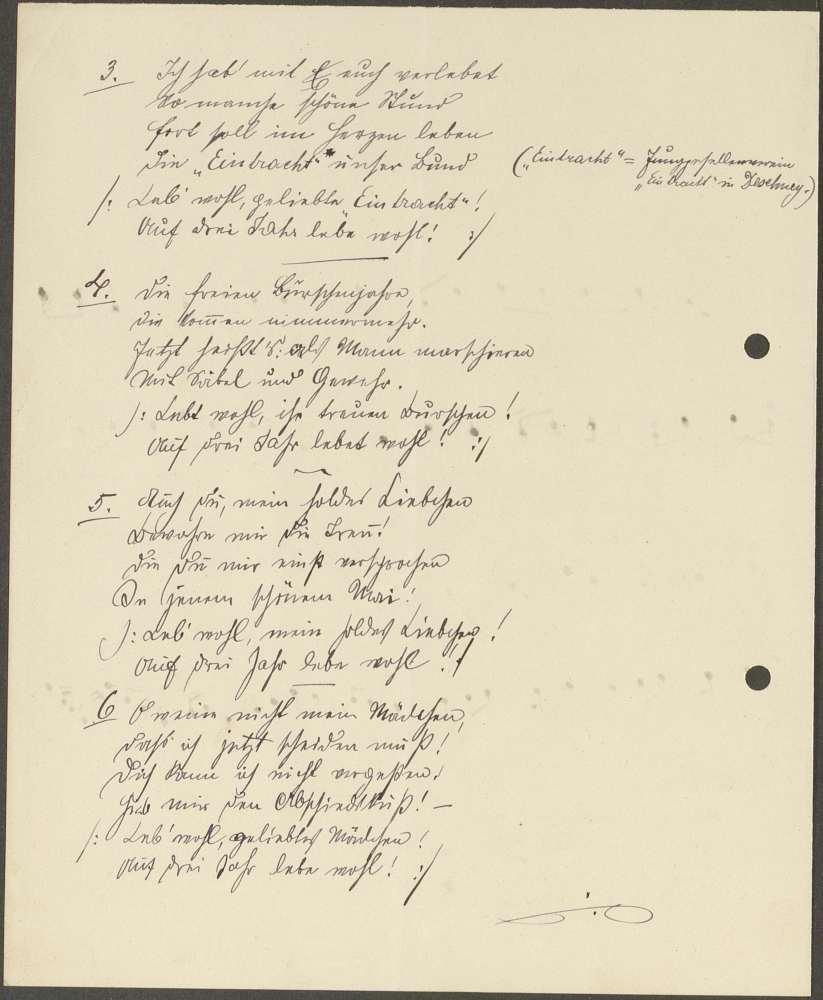 3. Ich hab' mit euch verlebet
So manche schöne Stund
fort soll im Herzen leben
Die „Eintracht"* unser Bund
(„Eintracht" = Junggesellenverein
„Eintracht" in)
/: Leb' wohl, geliebte Eintracht"!
Auf drei Jahr lebe wohl! :/
4. Die freien Burschenjahre,
Die kom̄en nimmermehr.
Jetzt heißt's: als Mann marschieren
Mit Säbel und Gewehr.
/: Lebt wohl, ihr treuen Burschen!
Auf drei Jahr lebet wohl! :/
5. Auch du, mein holdes Liebchen
Bewahre mir die Treu!
Die du mir einst versprochen
In jenem schönem Mai!
/: Leb' wohl, mein holdes Liebchen!
Auf drei Jahr lebe wohl! :/
6 O weine nicht mein Mädchen,
Dass ich jetzt scheiden muß!
Dich kann ich nicht vergeßen.
Gib mir den Abschiedskuß! —
/: Leb' wohl, geliebtes Mädchen!
Auf drei Jahr lebe wohl! :/